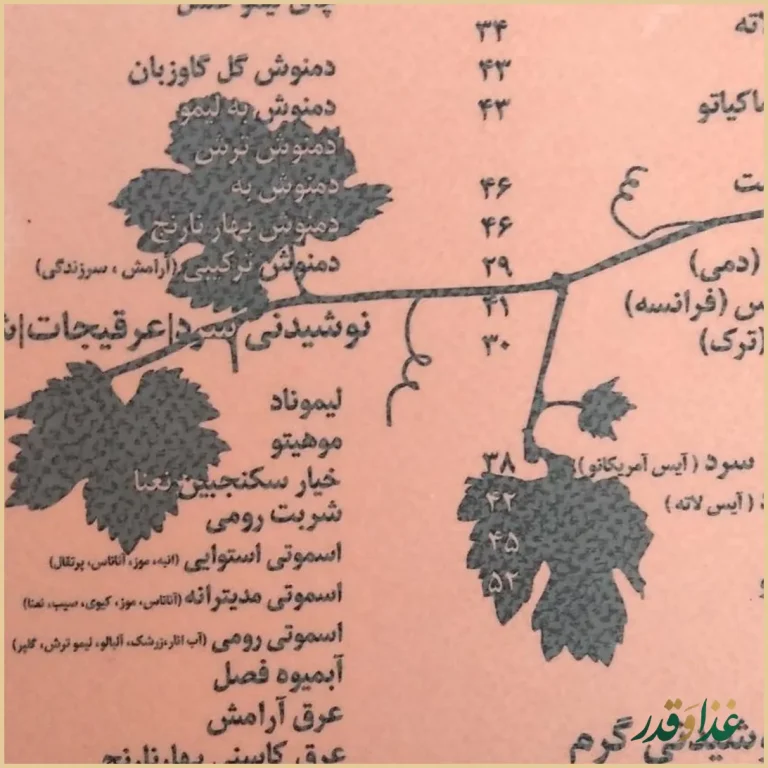 ۳۴
۴۳
ماکیاتو ۴۳
۴۶
۴۶
(دمی) ۲۹
(فرانسه) ۴۱
(ترک) ۳۰
سرد (آیس آمریکانو) ۳۸
(آیس لاته) ۴۲
۴۵
۵۲
نوشیدنی گرم
چای لیمو عسل
دمنوش گل گاوزبان
دمنوش به لیمو
دمنوش ترش
دمنوش به
دمنوش بهار نارنج
دمنوش ترکیبی (آرامش ، سرزندگی)
نوشیدنی سرد|عرقیجات|
لیموناد
موهیتو
خیار سکنجبین نعنا
شربت رومی
اسموتی استوایی (انبه، موز، آناناس، پرتقال)
اسموتی مدیترانه (آناناس، موز، کیوی، سیب، نعنا)
اسموتی رومی (آب انار،زرشک، آلبالو، لیمو ترش، گلپر)
آبمیوه فصل
عرق آرامش
عرق کاسنی بهارنارنج
غذا و قدر